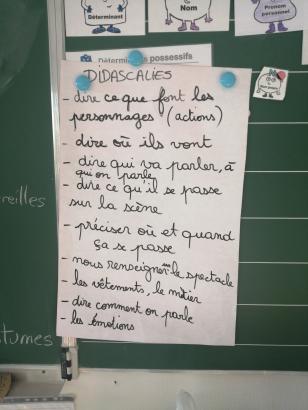 Déterminant
Nom
Pronom
personnel
Déterminants possessifs
DIDASCALIES
- dire ce que font les
personnages (actions)
- dire où ils vont
- dire qui va parler, à
qui on parle
- dire ce qu'il se passe
sur la scène
- préciser où et quand
ça se passe
- nous renseigner sur le spectacle
- les vêtements, le métier
- dire comment on parle
- les émotions
reilles
tumes